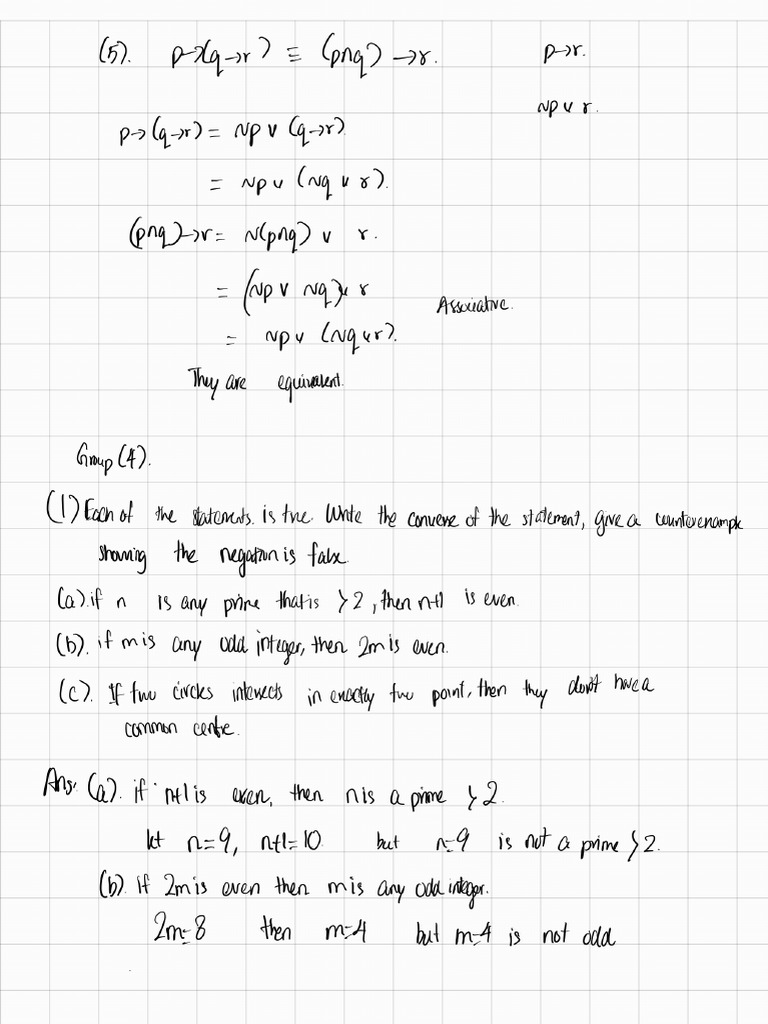 (5). p→(q→r) ≡ (p∩q) →r. p→r.
Np v r.
p→(q→r) = Np v (q→r)
= Np v (Nq v r).
(p∩q)→r = N(p∩q) v r.
= (Np v Nq) v r Associative.
= Np v (Nq v r).
They are equivalent.
Group (4).
(1) Each of the statements. is true. Write the converse of the statement, give a counterexample
showing the negation is false.
(a). if n is any prime that is >2, then n+1 is even.
(b). if m is any odd integer, then 2m is even.
(c). If two circles intersects in exactly two point, then they don't have a
common centre.
Ans: (a). if n+1 is even, then n is a prime >2.
let n=9, n+1=10. but n=9 is not a prime >2.
(b). If 2m is even then m is any odd integer.
2m=8 then m=4 but m=4 is not odd